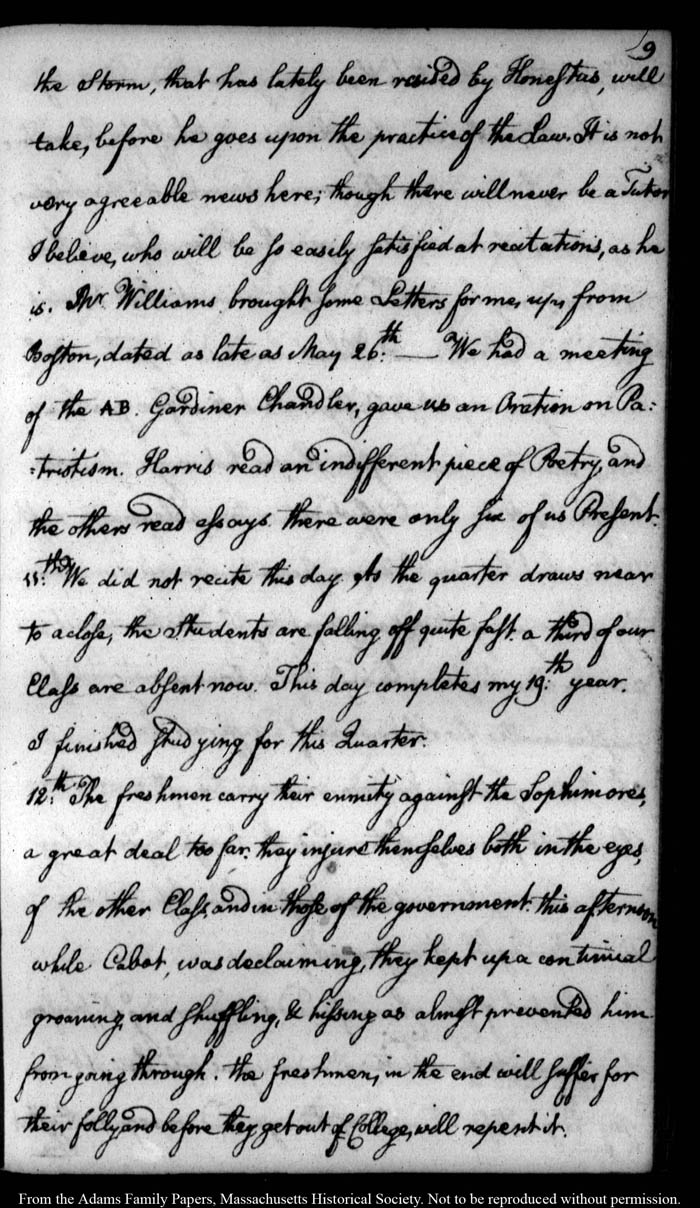 9
the Storm, that has lately been raised by Honestus, will
take, before he goes upon the practice of the Law. It is not
very agreeable news here; though there will never be a Tutor
I believe, who will be so easily satisfied at recitations, as he
is. Mr. Williams brought some Letters for me, up, from
Boston, dated as late as May 26:th — We had a meeting
of the AB. Gardiner Chandler, gave us an Oration on Pa:
:triotism. Harris read an indifferent piece of Poetry, and
the others read essays. there were only six of us Present.
11:th We did not recite this day. As the quarter draws near
to a close, the Students are falling off quite fast. a third of our
Class are absent now. This day completes my 19:th year.
I finished studying for this Quarter.
12:th The freshmen carry their enmity against the Sophimores,
a great deal too far. they injure themselves both in the eyes,
of the other Class, and in those of the government. this afternoon
while Cabot, was declaiming, they kept up a continual
groaning, and shuffling, & hissing as almost prevented him
from going through. the freshmen, in the end will suffer for
their folly and before they get out of College, will repent it.
From the Adams Family Papers, Massachusetts Historical Society. Not to be reproduced without permission.